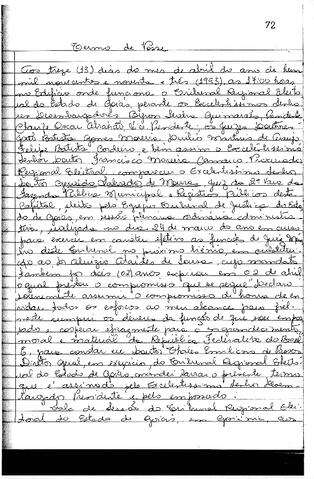 72
Termo de Posse
Aos treze (13) dias do mês de abril do ano de hum
mil novecentos e noventa e três (1993), às 17:00 horas
no Edifício onde funciona o Tribunal Regional Eleito
ral do Estado de Goiás, perante os Excelentíssimos Senho
res Desembargadores Byron Seabra Guimarães, Presidente
Charife Oscar Abrahão, Vice Presidente, os Juízes Doutores
João Batista Gomes Moreira, Emílio Martins de Araújo
Felipe Batista Cordeiro, e bem assim o Excelentíssimo
Senhor Doutor Francisco Moreira Camarço Procurador
Regional Eleitoral, compareceu o Excelentíssimo Senhor
Doutor Geraldo Salvador de Moura, Juiz da 2ª Vara da
Fazenda Pública Municipal e Registros Públicos desta
Capital, eleito pelo Egrégio Tribunal de Justiça do Esta
do de Goiás, em sessão plenária ordinária administra
tiva, realizada no dia 24 de março do ano em curso
para exercer em caráter efetivo as funções de Juiz
deste Tribunal no próximo biênio, em substitui
ção ao Dr. Aluízio de Sousa, cujo mandato
também por dois (02) anos expirou em 02 de abril
o qual prestou o compromisso que se segue: Declaro
solenemente assumir o compromisso de honra de en
vidar todos os esforços ao meu alcance para fiel
mente cumprir os deveres da função de que sou empos
sado e cooperar eficazmente para o engrandecimento
moral e material da República Federativa do Brasil
E, para constar eu Doutor Emílio
Diretor Geral, em exercício, do Tribunal Regional Eleito
ral do Estado de Goiás, mandei lavrar o presente termo
que é assinado pelo Excelentíssimo Senhor Desem
bargador Presidente e pelo empossado.
Sala de Sessões do Tribunal Regional Elei
toral do Estado de Goiás, em Goiânia, aos